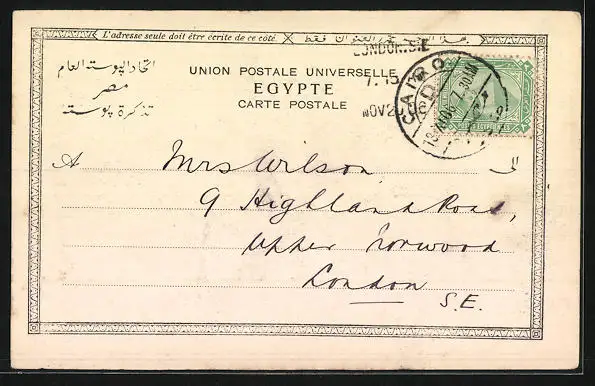 L'adresse seule doit être écrite de ce côté.
LONDON. S.E
اتحاد البوستة العام
مصر
تذكرة بوستة
UNION POSTALE UNIVERSELLE
EGYPTE
CARTE POSTALE
7. 15
NOV 20
CAIRO
D
7.30 AM
A
Mrs Wilson
الى
9 Highland Road,
Upper Norwood
London
S.E.